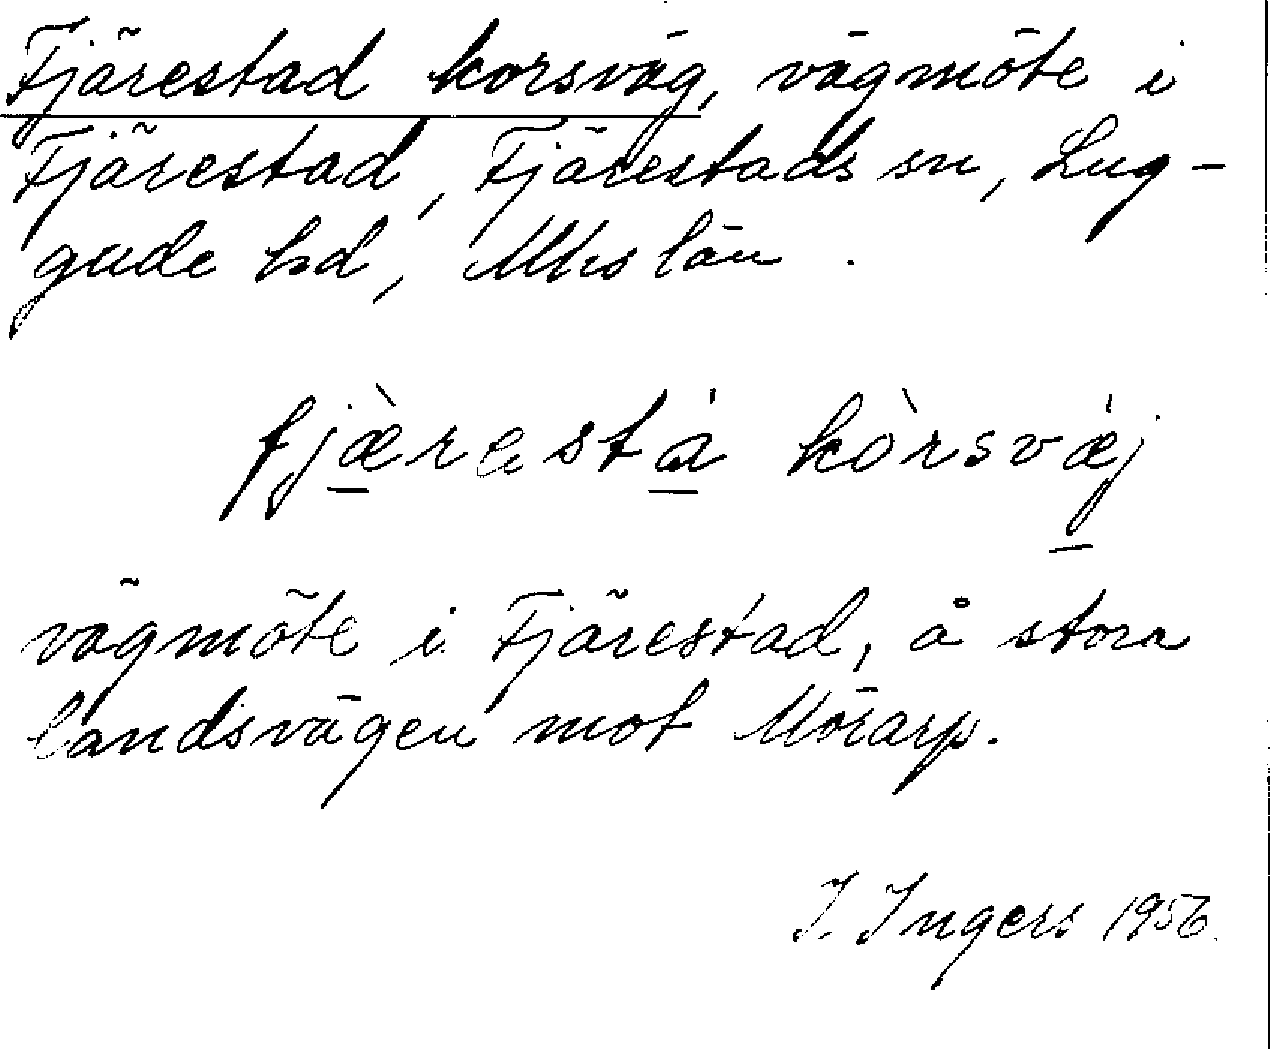 Fjärestad korsväg, vägmöte i
Fjärestad, Fjärestads sn, Lug-
gude hd, Mhs län.
fjæ̀rastá kòrsvǽj
vägmöte i Fjärestad, å stora
landsvägen mot Mörarp.
I. Ingers 1956.